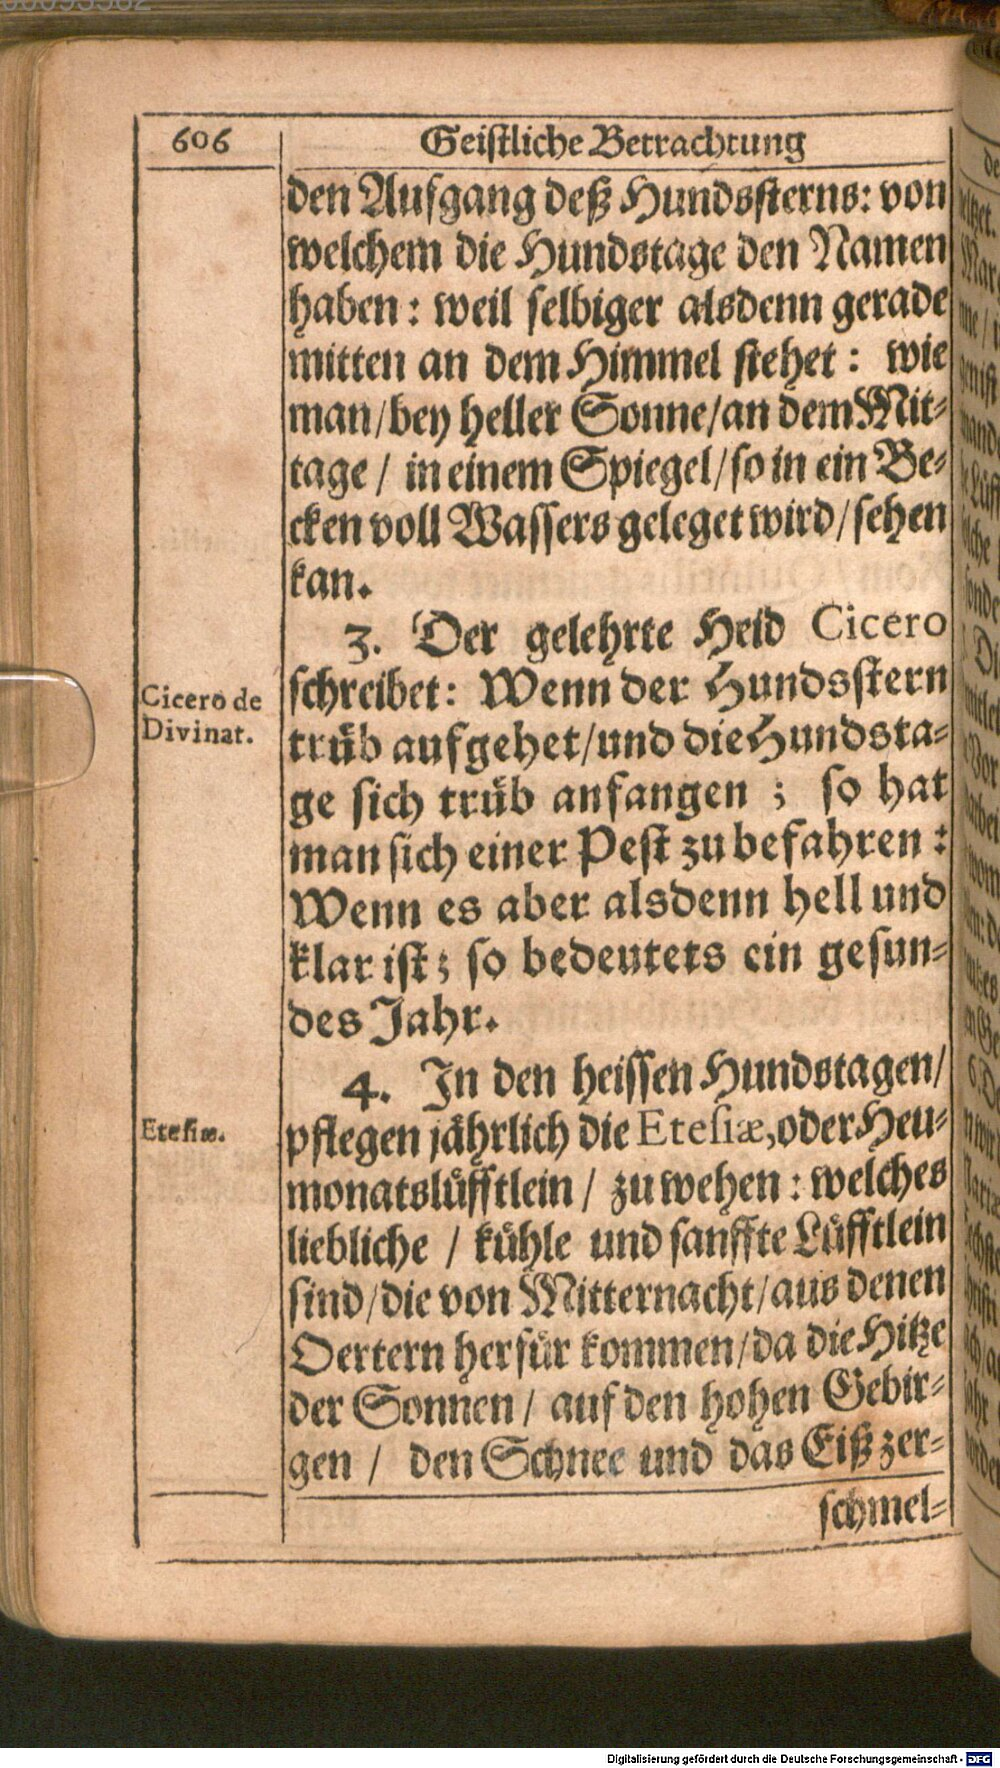 606
Geistliche Betrachtung
den Aufgang deß Hundssterns: von
welchem die Hundstage den Namen
haben: weil selbiger alsdenn gerade
mitten an dem Himmel stehet: wie
man/bey heller Sonne/an dem Mit-
tage/ in einem Spiegel/so in ein Be-
cken voll Wassers geleget wird/sehen
kan.
3. Der gelehrte Heid Cicero
schreibet: Wenn der Hundsstern
trüb aufgehet/und die Hundsta-
ge sich trüb anfangen; so hat
man sich einer Pest zu befahren:
Wenn es aber alsdenn hell und
klar ist; so bedeutets ein gesun-
des Jahr.
4. In den heissen Hundstagen/
pflegen jährlich die Etesiæ, oder Heu-
monatslüfftlein/ zu wehen: welches
liebliche / kühle und sanffte Lüfftlein
sind/die von Mitternacht/aus denen
Oertern herfür kommen/da die Hitze
der Sonnen/ auf den hohen Gebir-
gen/ den Schnee und das Eiß zer-
schmel-
Cicero de
Divinat.
Etesiæ.
Digitalisierung gefördert durch die Deutsche Forschungsgemeinschaft - DFG